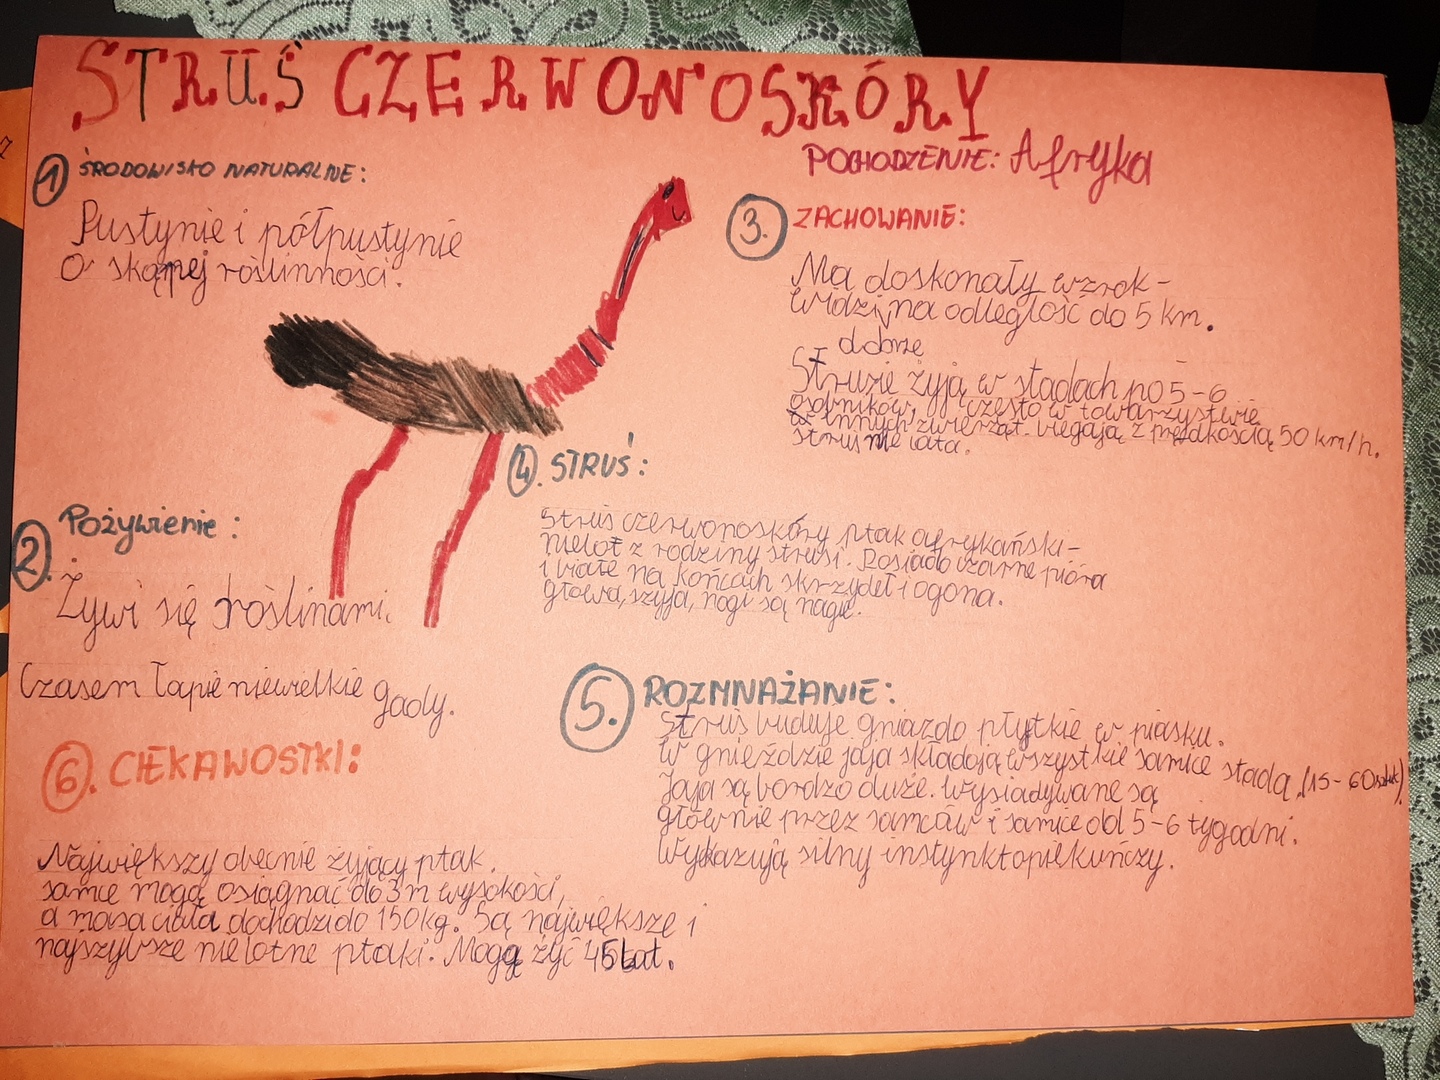 STRUŚ CZERWONOSKÓRY
POCHODZENIE: Afryka
1 ŚRODOWISKO NATURALNE:
Pustynie i półpustynie
O skąpej roślinności.
2. Pożywienie:
Żywi się roślinami.
Czasem łapie niewielkie gady.
3. ZACHOWANIE:
Ma doskonały wzrok-
widzi na odległość do 5 km.
dobrze
Strusie żyją w stadach po 5-6
osobników, często w towarzystwie
innych zwierząt. biegają z prędkością 50 km/h.
struś nie lata.
4. STRUŚ:
Struś czerwonoskóry ptak afrykański-
nielot z rodziny strusi. Posiada czarne pióra
i białe na końcach skrzydeł i ogona.
głowa, szyja, nogi są nagie.
5. ROZMNAŻANIE:
Struś buduje gniazdo płytkie w piasku.
W gnieździe jaja składają wszystkie samice stada. (15-60sztuk).
Jaja są bardzo duże. Wysiadywane są
głównie przez samców i samice od 5-6 tygodni.
Wykazują silny instynkt opiekuńczy.
6. CIEKAWOSTKI:
Największy obecnie żyjący ptak.
samce mogą osiągnąć do 3m wysokości,
a masa ciała dochodzi do 150kg. Są największe i
najszybsze nielotne ptaki. Mogą żyć 45 lat.